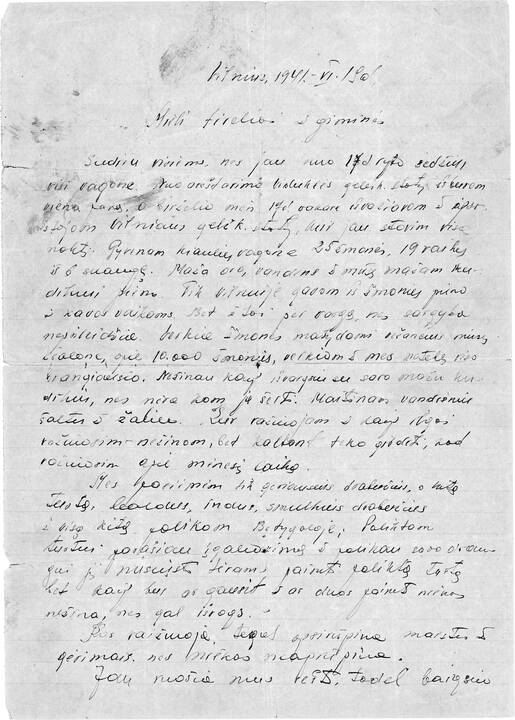 Vilnius, 1941.-VI-19d.
Mieli tėveliai ir giminės
Sudiev visiems, nes jau nuo 17d ryto sėdime
visi vagone. Nuo areštavimo
vieną parą, o birželio mėn 19d vakare išvažiavom ir
Vilniaus geležk. stoty, kur jau stovim visą
naktį. Gyvenam kiaulių vagone 25 žmonės, 19 vaikų
ir 6 suaugę. Maža oro, vandens ir mūsų mažam kū-
dikiui pieno. Tik Vilniuje gavom iš žmonių pieno
ir kavos vaikams. Bet ir šoj per vargą, nes sargyba
neprileidžia. Verkia žmonės matydami mūsų
apie 10.000 žmonių, verkiame ir mes netekę viso
brangiausio. Nežinau kaip išauginsiu savo mažą kū-
dikį, nes nėra kom ją šerti. Maitinam vandeniu
šaltu ir Kur važiuojam ir kaip ilgai
važiuosim - nežinom, bet kalbant teko girdėti, kad
važiuosim apie mėnesį laiko.
Mes pasiėmėm tik geriausius drabužius, o kitą
turtą, baldus, indus, smulkius drabužius
ir visą kitą palikom Betygaloje. Paliktam
turtui parašiau įgaliojimą ir palikau savo drau-
gui jį nusiųsti tėvams paimti paliktą turtą
bet kaip bus ar gausit ir ar duos paimti nieko
nežinau, nes gal išvogs.
Kas važiuoja, tegul apsirūpina maistu ir
gėrimais, nes niekas neaprūpina.
Jau ruošia mus vežti, todėl baigsiu